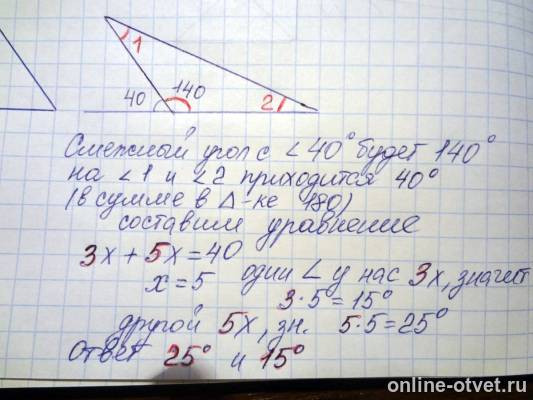 1
40 140 2
Смежный угол с ∠40° будет 140°
на ∠1 и ∠2 приходится 40°
(в сумме в Δ-ке 180)
составим уравнение
3x + 5x = 40
x = 5 один ∠ у нас 3x, значит
3·5 = 15°
другой 5x, зн. 5·5 = 25°
Ответ 25° и 15°
online-otvet.ru